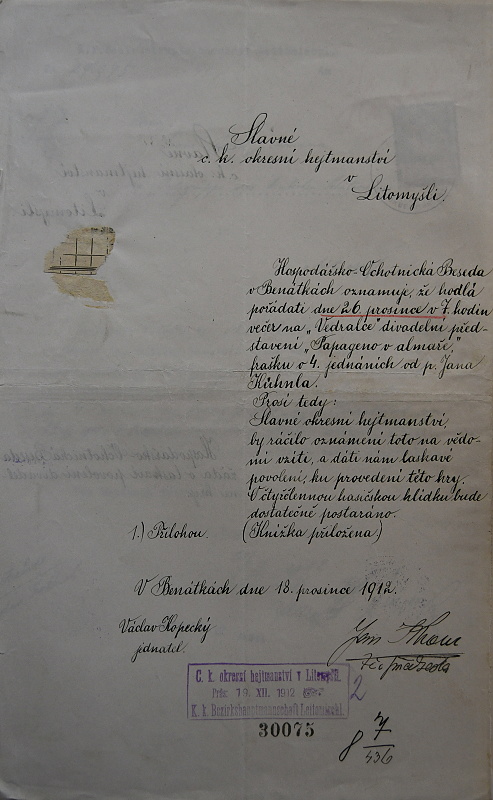 Slavné
c. k. okresní hejtmanství
v
Litomyšli.
Hospodářsko-Ochotnická Beseda
v Benátkách oznamuje, že hodlá
pořádati dne 26. prosince v 7. hodin
večer na „Vedralce" divadelní před-
stavení „Papageno v almaři,"
frašku o 4. jednáních od p. Jana
Kühnla.
Prosí tedy:
Slavné okresní hejtmanství,
by ráčilo oznámení toto na vědo-
mí vzíti, a dáti nám laskavé
povolení, ku provedení této hry.
O čtyřčlennou hasičskou hlídku bude
dostatečně postaráno.
1.) Přílohou. (Knížka přiložena.)
V Benátkách dne 18. prosince 1912.
Václav Kopecký
jednatel.
Jan
C. k. okresní hejtmanství v Litomyšli.
Präs. 19. XII. 1912
K. k. Bezirkshauptmannschaft Leitomischl.
2
30075
8 7/436